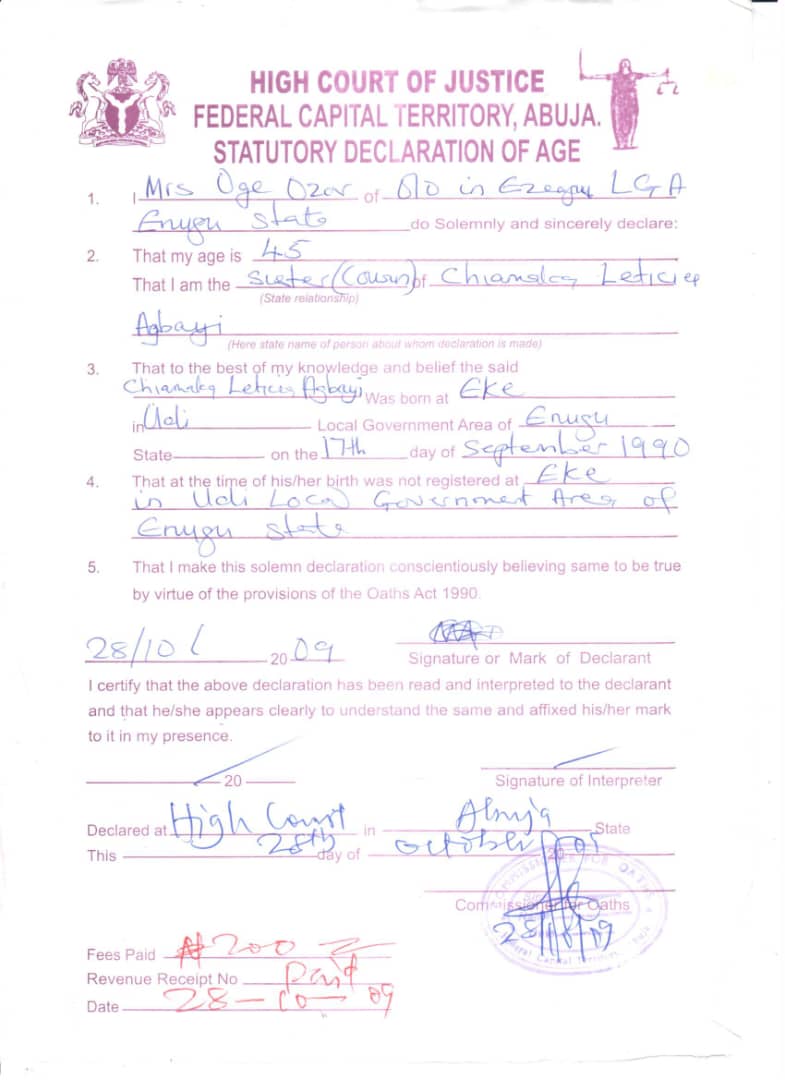 HIGH COURT OF JUSTICE
FEDERAL CAPITAL TERRITORY, ABUJA.
STATUTORY DECLARATION OF AGE
1. I Mrs Oge Ozor of in LGA
Enugu State do Solemnly and sincerely declare:
2. That my age is 45
That I am the Sister (Cousin) of Chiamaka Leticia
(State relationship)
Agbayi
(Here state name of person about whom declaration is made)
3. That to the best of my knowledge and belief the said
Chiamaka Leticia Agbayi Was born at Eke
in Udi Local Government Area of Enugu
State on the 17th day of September 1990
4. That at the time of his/her birth was not registered at Eke
in Udi Local Government Area of
Enugu State
5. That I make this solemn declaration conscientiously believing same to be true
by virtue of the provisions of the Oaths Act 1990.
28/10/ 2009
Signature or Mark of Declarant
I certify that the above declaration has been read and interpreted to the declarant
and that he/she appears clearly to understand the same and affixed his/her mark
to it in my presence.
20
Signature of Interpreter
Declared at High Court in Abuja State
This 28th day of October 20
Commissioner for Oaths
28/10/09
Fees Paid ₦200
Revenue Receipt No Paid
Date 28-10-09